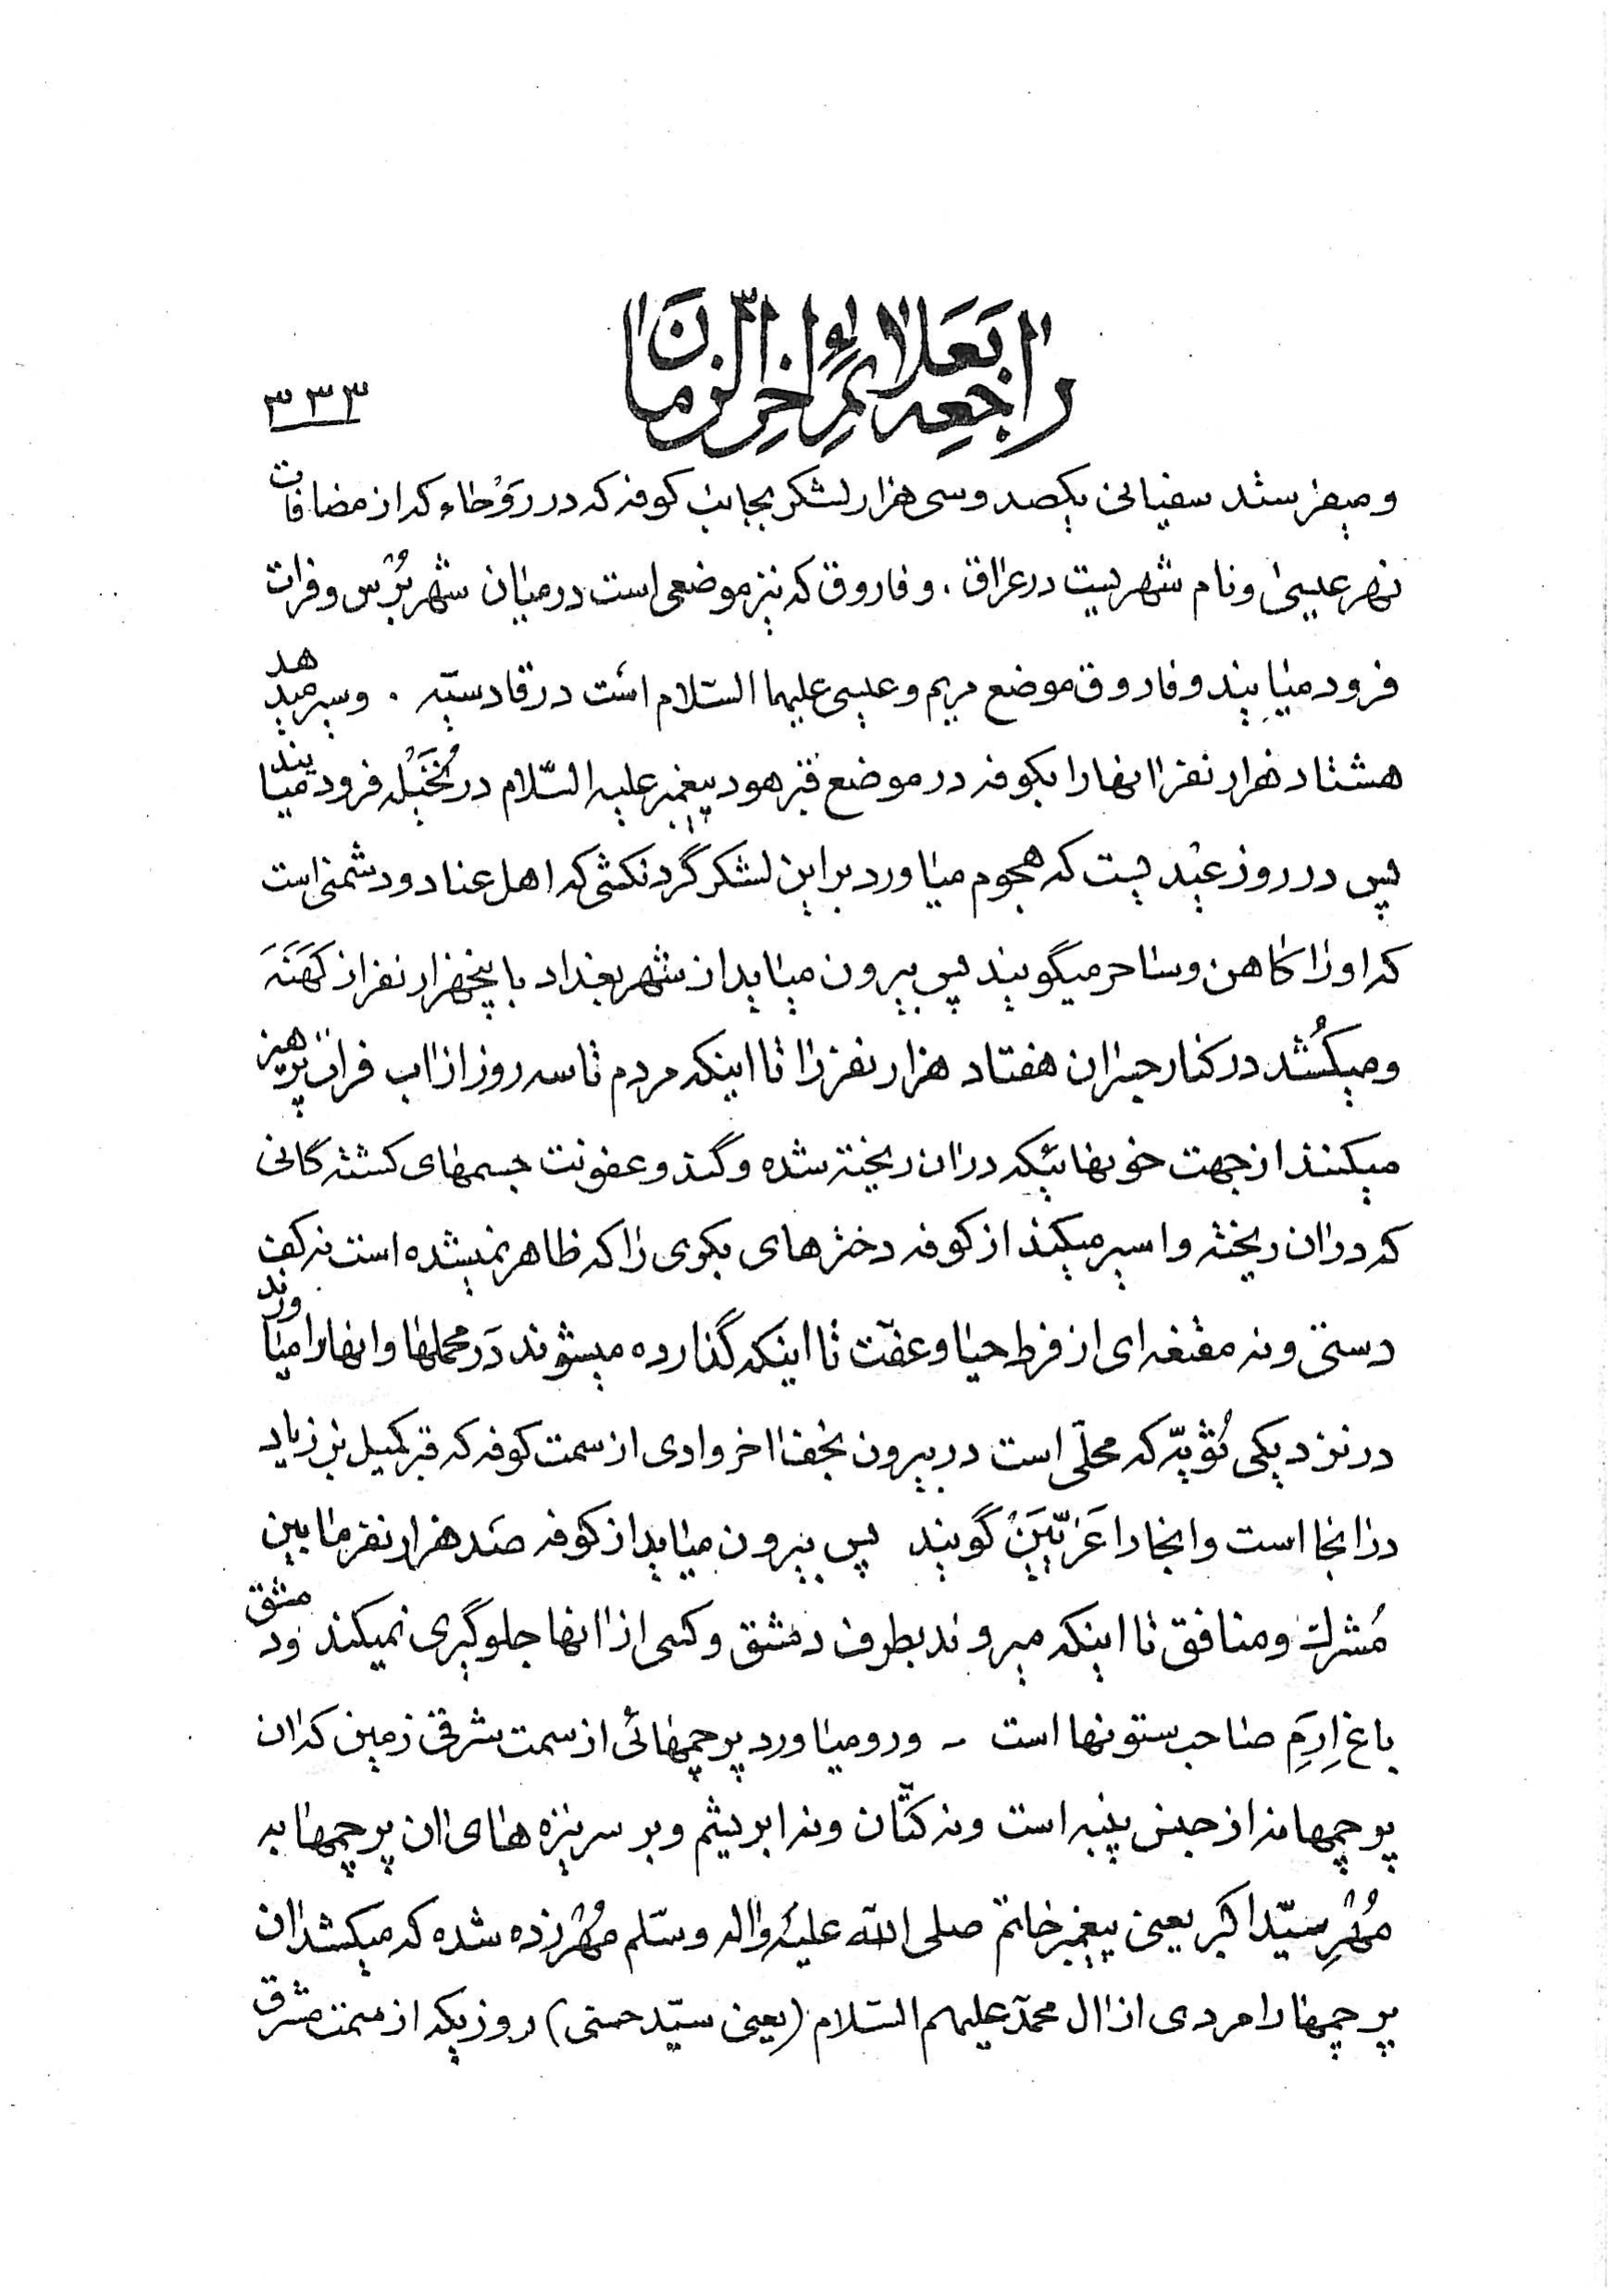 راجعه بعلائم اٰخر الزّمان
۳۳۳
و میفرستد سفیانی یکصد و سی هزار لشکر بجانب کوفه که در رَوْحاء که از مضافات
نهر عیسیٰ و نام شهریست در عراق . و فاروق که نیز موضعی است در میان شهر بُرْس و فرات
فرود میایند و فاروق موضع مریم و عیسی علیهما السّلام است در قادسیّه . و سیر میدهد
هشتاد هزار نفر از انها را بکوفه در موضع قبر هود پیغمبر علیه السّلام در نُخَیْله فرود میایند
پس در روز عید یست که هجوم میاورد بر این لشکر گردنکشی که اهل عناد و دشمنی است
که او را کاهن و ساحر میگویند پس بیرون میاید از شهر بغداد با پنجهزار نفر از کَهَنَه
و میکُشد در کنار جسران هفتاد هزار نفر را تا اینکه مردم تا سه روز از اب فرات پرهیز
میکنند از جهت خونهائیکه در ان ریخته شده و گند و عفونت جسمهای کشته گانی
که در ان ریخته و اسیر میکند از کوفه دخترهای بکری را که ظاهر نمیشده است نه کف
دستی و نه مقنعه ای از فرط حیا و عفّت تا اینکه گذارده میشوند دَر محملها و انها را میاورند
در نزدیکی ثُوَیّه که محلّی است در بیرون نجف اخر وادی از سمت کوفه که قبر کمیل بن زیاد
در انجا است و انجا را غَرِیَّیَنْ گویند پس بیرون میاید از کوفه صَد هزار نفر ما بین
مُشرک و منافق تا اینکه میروند بطرف دمشق و کسی از انها جلوگیری نمیکند و دمشق
باغ اِرَمِ صاحب ستونها است - و رو میاورد پرچمهائی از سمت شرقی زمین که ان
پرچمها نه از جنس پنبه است و نه کتّان و نه ابریشم و بر سر نیزه های ان پرچمها به
مُهْرِ سیّد اکبر یعنی پیغمبر خاتم صلی الله علیه و اله و سلّم مُهْر زده شده که میکشد ان
پرچمها را مردی از ال محمّد علیهم السّلام (یعنی سیّد حسنی) روزیکه از سمت مشرق